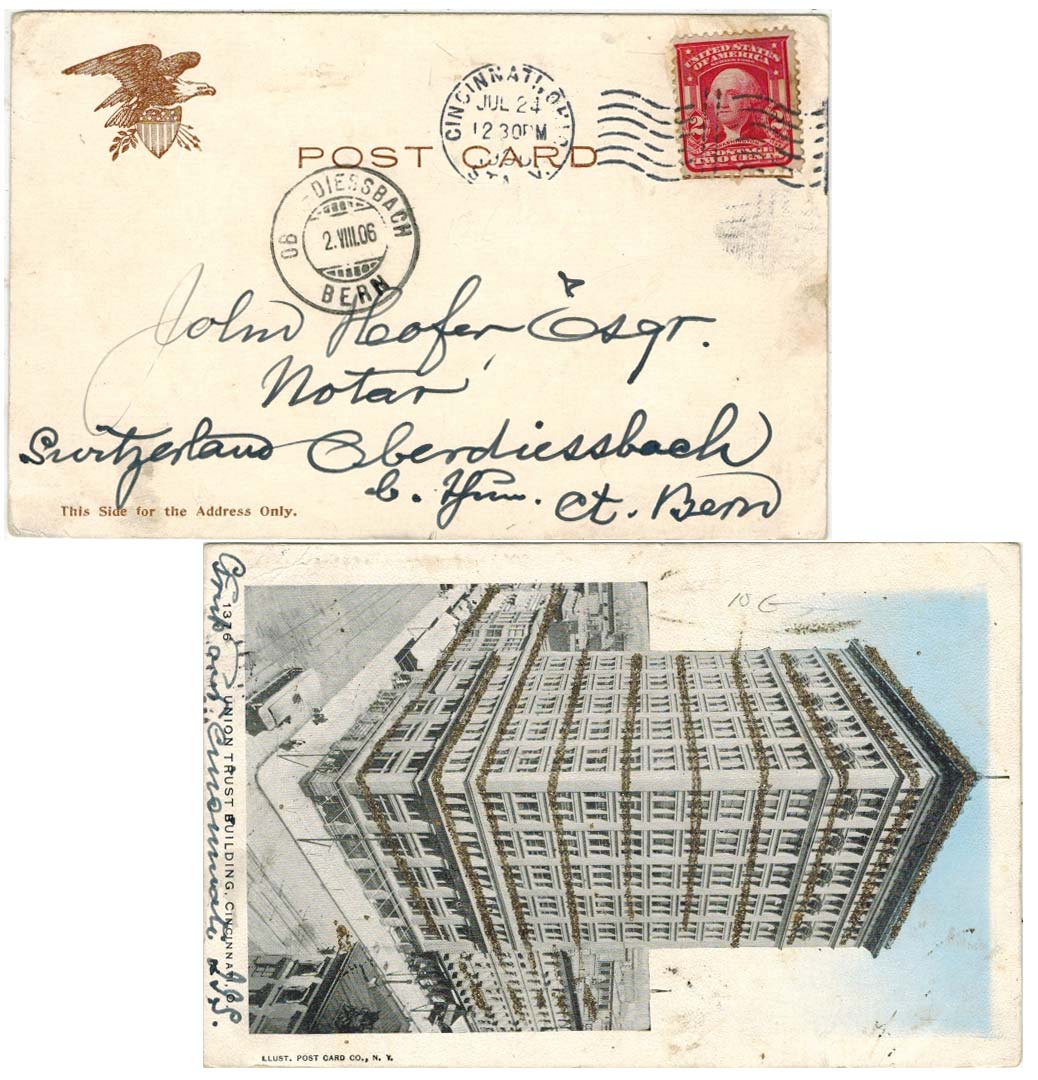 UNITED STATES OF AMERICA
2 2
WASHINGTON
POSTAGE
TWO CENTS
CINCINNATI, OHIO
JUL 24
12 30PM
POST CARD
OB DIESSBACH
2.VIII.06
BERN
John Hofer Esqr.
Notar
Switzerland Oberdiessbach
Ct. Bern
This Side for the Address Only.
10
1376 UNION TRUST BUILDING, CINCINNATI, O.
ILLUST. POST CARD CO., N. Y.